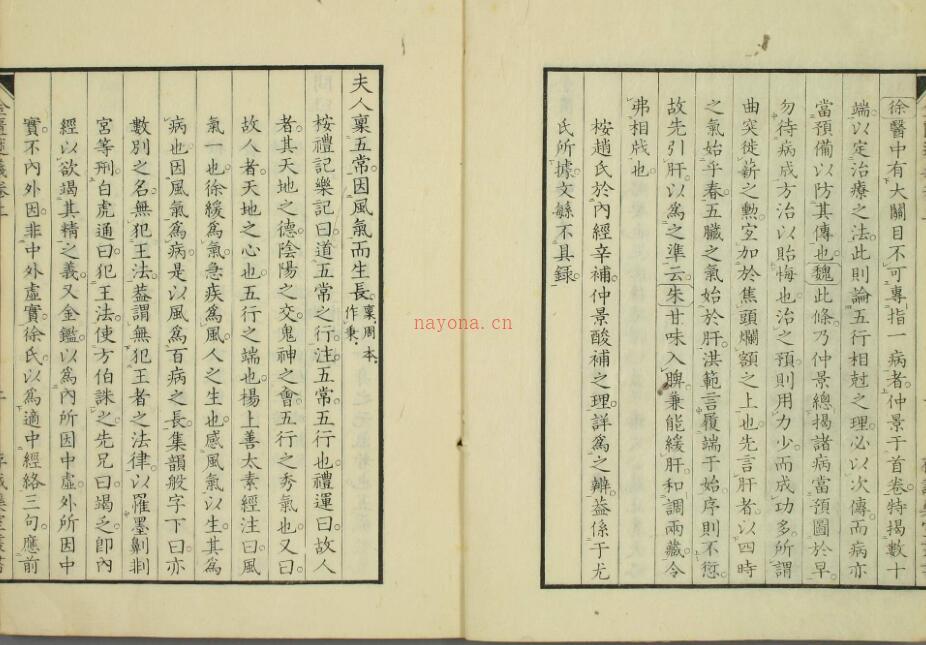 徐醫中有大關目不可專指一病者仲景于首卷特揭數十
端以定治療之法此則論五行相尅之理必以次傳而病亦
當預備以防其傳也魏此條乃仲景總揭諸病當預圖於早
勿待病成方治以貽悔也治之預則用力少而成功多所謂
曲突徙薪之勲宜加於焦頭爛額之上也先言肝者以四時
之氣始乎春五臟之氣始於肝洪範言履端于始序則不愆
故先引肝以爲之準云朱甘味入脾兼能緩肝和調兩藏令
弗相戕也
桉趙氏於內經辛補仲景酸補之理詳爲之辨葢係于尤
氏所據文繇不具録
夫人稟五常因風氣而生長稟周本作秉
桉禮記樂記曰道五常之行注五常五行也禮運曰故人
者其天地之德陰陽之交鬼神之會五行之秀氣也又曰
故人者天地之心也五行之端也楊上善太素經注曰風
氣一也徐緩爲氣急疾爲風人之生也感風氣以生其爲
病也因風氣爲病是以風爲百病之長集韻般字下曰亦
數別之名無犯王法葢謂無犯王者之法律以罹墨劓剕
宮等刑白虎通曰犯王法使方伯誅之先兄曰竭之卽內
經以欲竭其精之義又金鑑以爲內所因中虛外所因中
實不內外因非中外虛實徐氏以爲適中經絡三句應前
nayona.cn